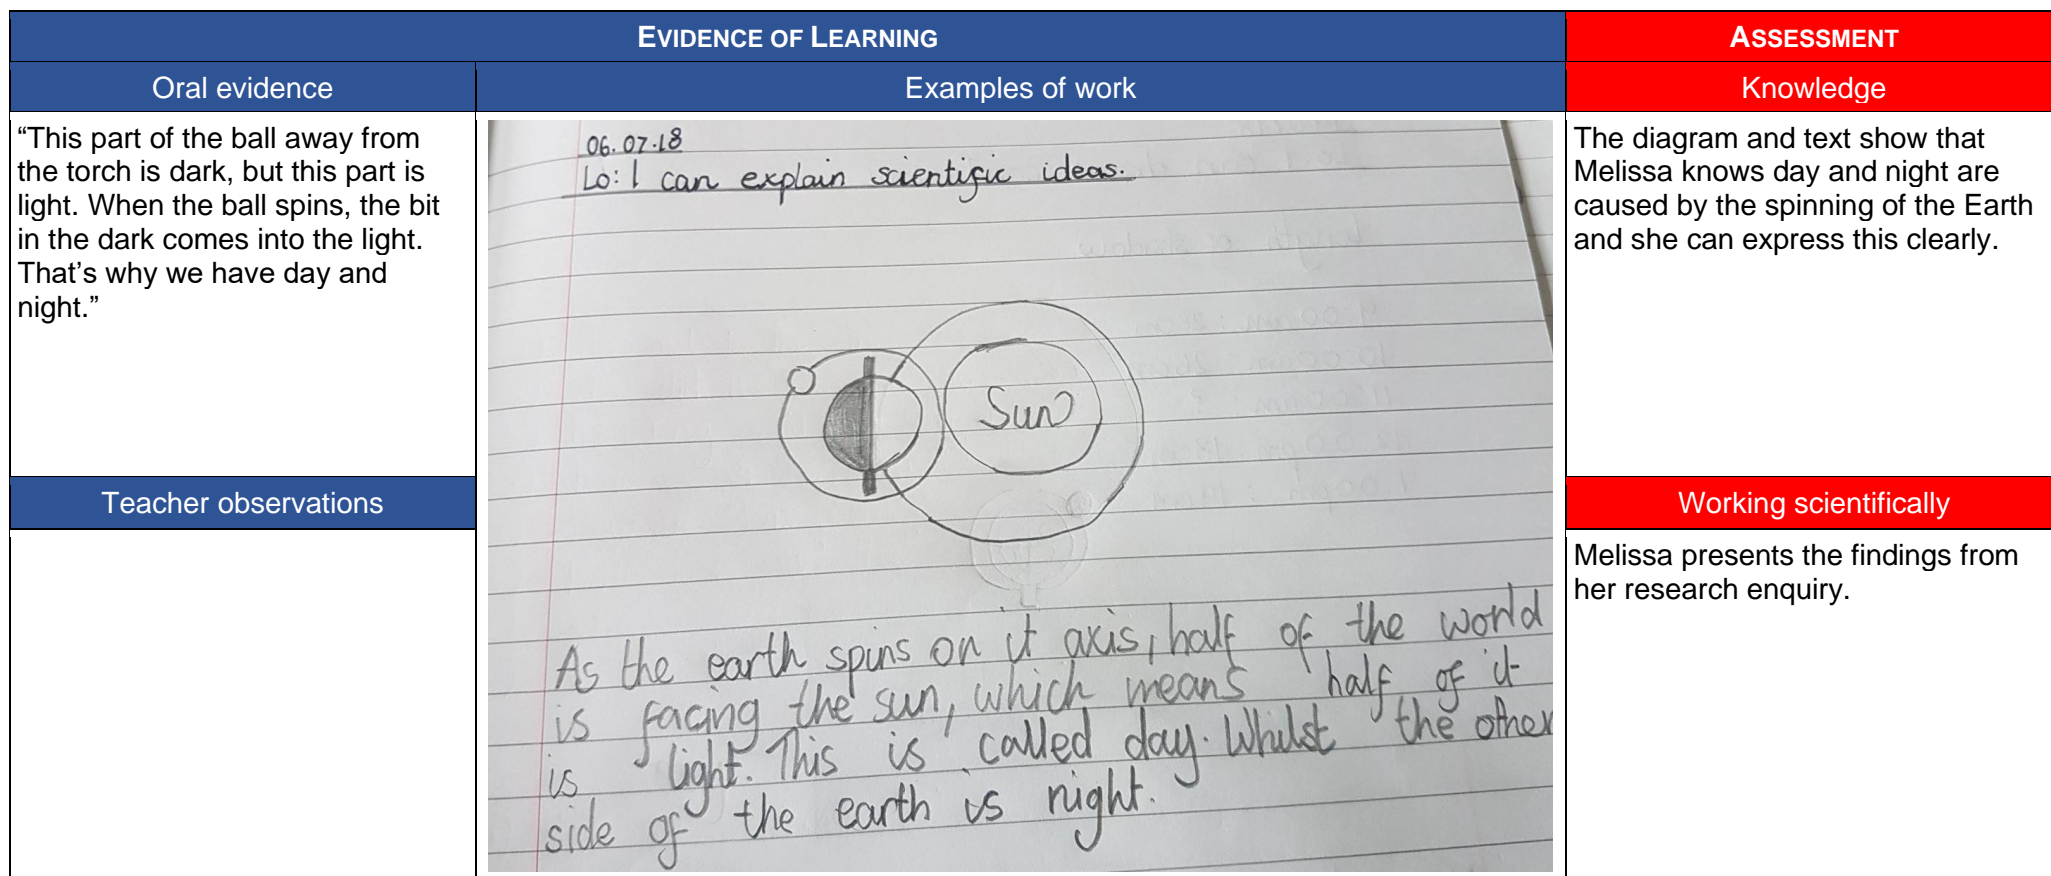 EVIDENCE OF LEARNING
ASSESSMENT
Oral evidence
Examples of work
Knowledge
“This part of the ball away from
the torch is dark, but this part is
light. When the ball spins, the bit
in the dark comes into the light.
That’s why we have day and
night.”
Teacher observations
06.07.18
Lo: I can explain scientific ideas.
Sun
As the earth spins on it axis, half of the world
is facing the sun, which means half of it
is light. This is called day. Whilst the other
side of the earth is night.
The diagram and text show that
Melissa knows day and night are
caused by the spinning of the Earth
and she can express this clearly.
Working scientifically
Melissa presents the findings from
her research enquiry.